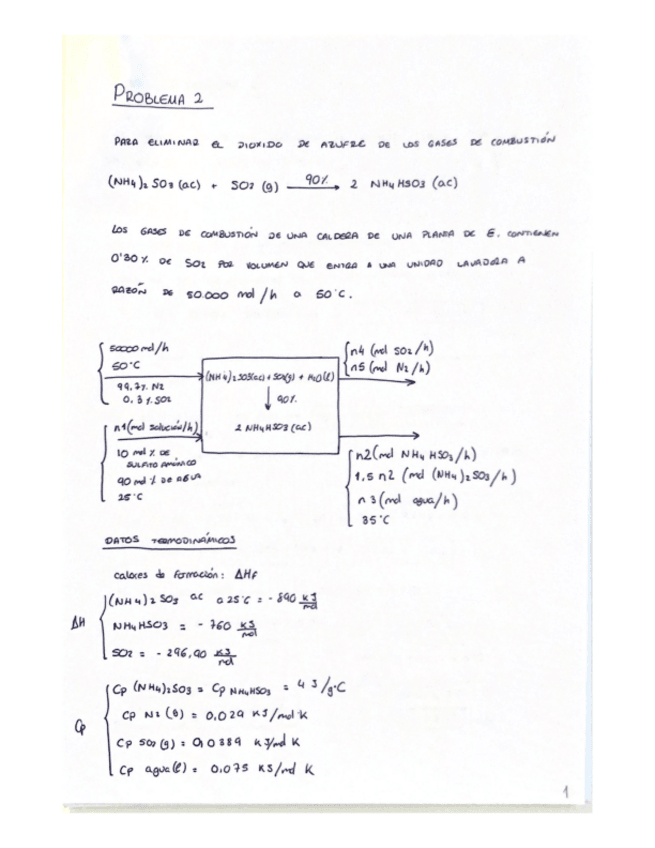 PROBLEMA 2
PARA ELIMINAR EL DIOXIDO DE AZUFRE DE LOS GASES DE COMBUSTIÓN
(NH4)2 SO3 (ac) + SO2 (g) 90% → 2 NH4HSO3 (ac)
LOS GASES DE COMBUSTIÓN DE UNA CALDERA DE UNA PLANTA DE E. CONTIENEN
0'30% DE SO2 POR VOLUMEN QUE ENTRA A UNA UNIDAD LAVADORA A
RAZÓN DE 50.000 mol/h a 50°C.
50000 mol/h
50°C
99,7% N2
0,3% SO2
n1 (mol solución/h)
10 mol % DE
SULFITO AMÓNICO
90 mol % DE AGUA
25°C
(NH4)2SO3(ac) + SO2(g) + H2O(l)
↓ 90%
2 NH4HSO3 (ac)
n4 (mol SO2/h)
n5 (mol N2/h)
n2 (mol NH4HSO3/h)
1,5 n2 (mol (NH4)2SO3/h)
n3 (mol agua/h)
35°C
DATOS TERMODINÁMICOS
calores de formación: ΔHf
ΔH
(NH4)2SO3 ac a 25°C = -890 KJ/mol
NH4HSO3 = -760 KJ/mol
SO2 = -296,90 KJ/mol
Cp
Cp (NH4)2SO3 = Cp NH4HSO3 = 4 J/g·°C
Cp N2 (g) = 0,029 KJ/mol·K
Cp SO2 (g) = 0,0389 KJ/mol K
Cp agua(l) = 0,075 KJ/mol K
1